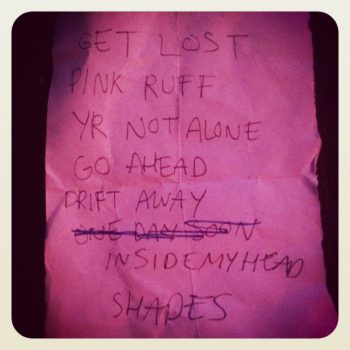 GET LOST
PINK RUFF
YR NOT ALONE
GO AHEAD
DRIFT AWAY
ONE DAY SOON
INSIDE MY HEAD
SHADES